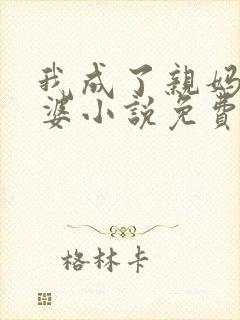 我成了親妈
婆小説免費
格林卡